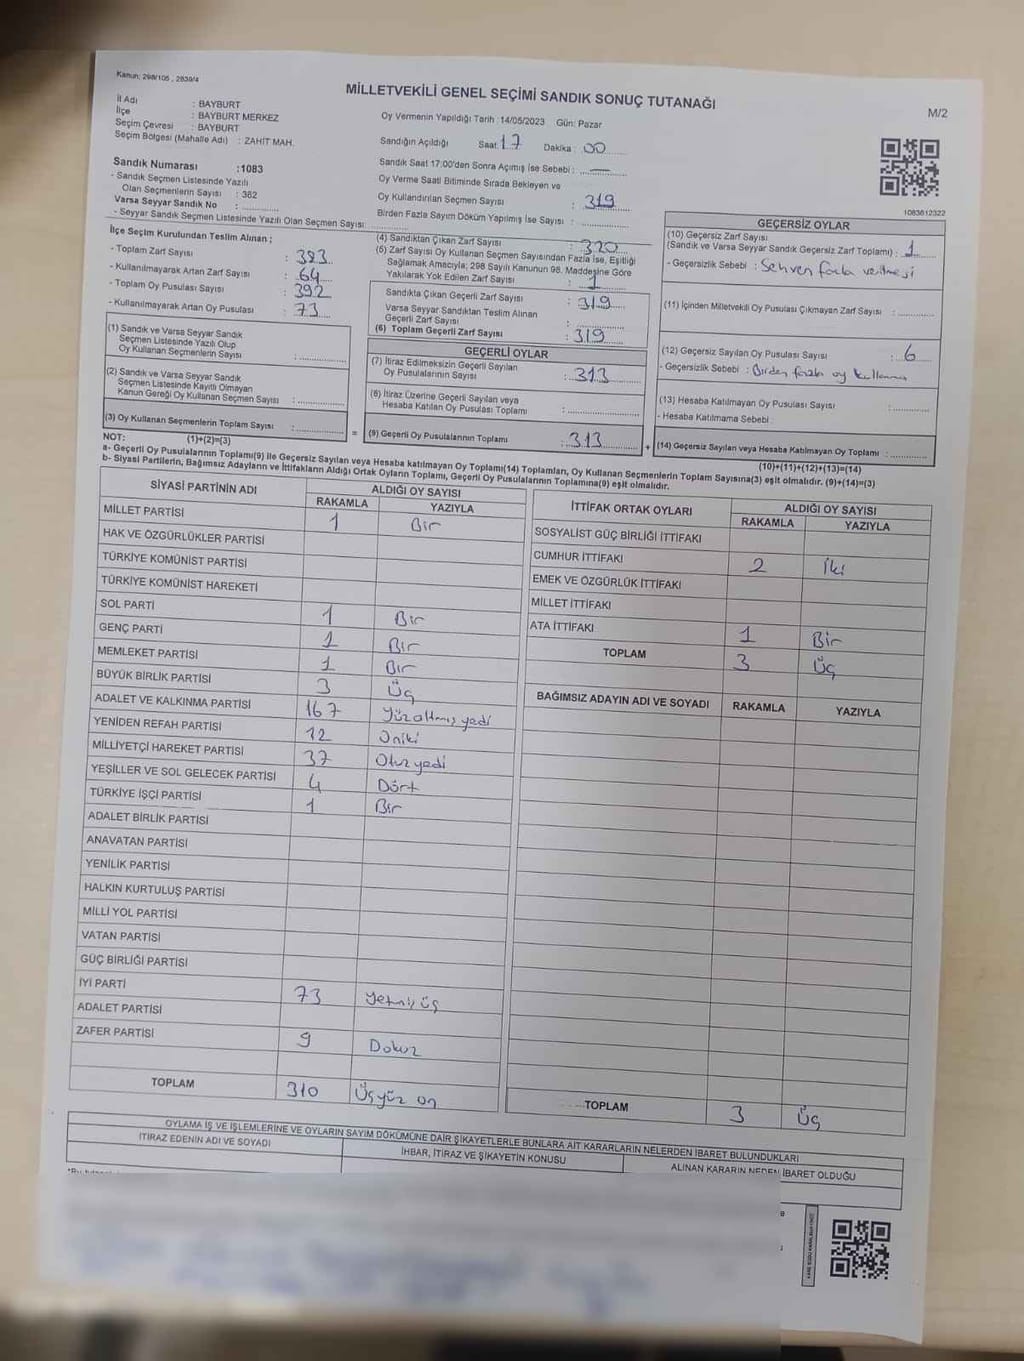 Kanun: 298/105 , 2839/4
MİLLETVEKİLİ GENEL SEÇİMİ SANDIK SONUÇ TUTANAĞI
M/2
İl Adı : BAYBURT
İlçe : BAYBURT MERKEZ
Seçim Çevresi : BAYBURT
Seçim Bölgesi (Mahalle Adı) : ZAHİT MAH.
Oy Vermenin Yapıldığı Tarih : 14/05/2023 Gün: Pazar
Sandığın Açıldığı Saat 17 Dakika : 00
Sandık Saat 17:00'den Sonra Açımış İse Sebebi :
Oy Verme Saati Bitiminde Sırada Bekleyen ve
Oy Kullandırılan Seçmen Sayısı : 319
Birden Fazla Sayım Döküm Yapılmış İse Sayısı :
Sandık Numarası :1083
- Sandık Seçmen Listesinde Yazılı
Olan Seçmenlerin Sayısı : 362
Varsa Seyyar Sandık No :
- Seyyar Sandık Seçmen Listesinde Yazılı Olan Seçmen Sayısı
1083612322
İlçe Seçim Kurulundan Teslim Alınan ;
- Toplam Zarf Sayısı : 383
- Kullanılmayarak Artan Zarf Sayısı : 64
- Toplam Oy Pusulası Sayısı : 392
- Kullanılmayarak Artan Oy Pusulası : 73
(1) Sandık ve Varsa Seyyar Sandık
Seçmen Listesinde Yazılı Olup
Oy Kullanan Seçmenlerin Sayısı :
(2) Sandık ve Varsa Seyyar Sandık
Seçmen Listesinde Kayıtlı Olmayan
Kanun Gereği Oy Kullanan Seçmen Sayısı :
(3) Oy Kullanan Seçmenlerin Toplam Sayısı :
(1)+(2)=(3)
(4) Sandıktan Çıkan Zarf Sayısı : 320
(5) Zarf Sayısı Oy Kullanan Seçmen Sayısından Fazla İse, Eşitliği
Sağlamak Amacıyla; 298 Sayılı Kanunun 98. Maddesine Göre
Yakılarak Yok Edilen Zarf Sayısı : 1
Sandıkta Çıkan Geçerli Zarf Sayısı : 319
Varsa Seyyar Sandıktan Teslim Alınan
Geçerli Zarf Sayısı :
(6) Toplam Geçerli Zarf Sayısı : 319
GEÇERLİ OYLAR
(7) İtiraz Edilmeksizin Geçerli Sayılan
Oy Pusulalarının Sayısı : 313
(8) İtiraz Üzerine Geçerli Sayılan veya
Hesaba Katılan Oy Pusulası Toplamı :
= (9) Geçerli Oy Pusulalarının Toplamı : 313 +
GEÇERSİZ OYLAR
(10) Geçersiz Zarf Sayısı
(Sandık ve Varsa Seyyar Sandık Geçersiz Zarf Toplamı) : 1
- Geçersizlik Sebebi : Sehven fazla verilmesi
(11) İçinden Milletvekili Oy Pusulası Çıkmayan Zarf Sayısı :
(12) Geçersiz Sayılan Oy Pusulası Sayısı : 6
- Geçersizlik Sebebi : Birden fazla oy kullanma
(13) Hesaba Katılmayan Oy Pusulası Sayısı :
- Hesaba Katılmama Sebebi :
(14) Geçersiz Sayılan veya Hesaba Katılmayan Oy Toplamı :
(10)+(11)+(12)+(13)=(14)
NOT:
a- Geçerli Oy Pusulalarının Toplamı(9) ile Geçersiz Sayılan veya Hesaba katılmayan Oy Toplamı(14) Toplamları, Oy Kullanan Seçmenlerin Toplam Sayısına(3) eşit olmalıdır. (9)+(14)=(3)
b- Siyasi Partilerin, Bağımsız Adayların ve İttifakların Aldığı Ortak Oyların Toplamı, Geçerli Oy Pusulalarının Toplamına(9) eşit olmalıdır.
SİYASİ PARTİNİN ADI ALDIĞI OY SAYISI
RAKAMLA YAZIYLA
MİLLET PARTİSİ 1 Bir
HAK VE ÖZGÜRLÜKLER PARTİSİ
TÜRKİYE KOMÜNİST PARTİSİ
TÜRKİYE KOMÜNİST HAREKETİ
SOL PARTİ 1 Bir
GENÇ PARTİ 1 Bir
MEMLEKET PARTİSİ 1 Bir
BÜYÜK BİRLİK PARTİSİ 3 Üç
ADALET VE KALKINMA PARTİSİ 167 Yüzaltmış yedi
YENİDEN REFAH PARTİSİ 12 Oniki
MİLLİYETÇİ HAREKET PARTİSİ 37 Otuz yedi
YEŞİLLER VE SOL GELECEK PARTİSİ 4 Dört
TÜRKİYE İŞÇİ PARTİSİ 1 Bir
ADALET BİRLİK PARTİSİ
ANAVATAN PARTİSİ
YENİLİK PARTİSİ
HALKIN KURTULUŞ PARTİSİ
MİLLİ YOL PARTİSİ
VATAN PARTİSİ
GÜÇ BİRLİĞİ PARTİSİ
İYİ PARTİ 73 Yetmiş üç
ADALET PARTİSİ
ZAFER PARTİSİ 9 Dokuz
TOPLAM 310 Üçyüz on
İTTİFAK ORTAK OYLARI ALDIĞI OY SAYISI
RAKAMLA YAZIYLA
SOSYALİST GÜÇ BİRLİĞİ İTTİFAKI
CUMHUR İTTİFAKI 2 İki
EMEK VE ÖZGÜRLÜK İTTİFAKI
MİLLET İTTİFAKI
ATA İTTİFAKI 1 Bir
TOPLAM 3 Üç
BAĞIMSIZ ADAYIN ADI VE SOYADI RAKAMLA YAZIYLA
TOPLAM 3 Üç
OYLAMA İŞ VE İŞLEMLERİNE VE OYLARIN SAYIM DÖKÜMÜNE DAİR ŞİKAYETLERLE BUNLARA AİT KARARLARIN NELERDEN İBARET BULUNDUKLARI
İTİRAZ EDENİN ADI VE SOYADI İHBAR, İTİRAZ VE ŞİKAYETİN KONUSU ALINAN KARARIN NEDEN İBARET OLDUĞU